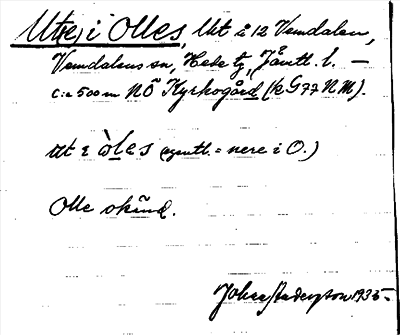 Utej i Olles, lkt å 12 Vemdalen,
Vemdalens sn, Hede tg, Jämtl. l. —
c:a 500 m NÖ Kyrkogård (kG77NM).
ut i òles (egentl. = nere i O.)
Olle okänd.
Johan Anderzton 1935-